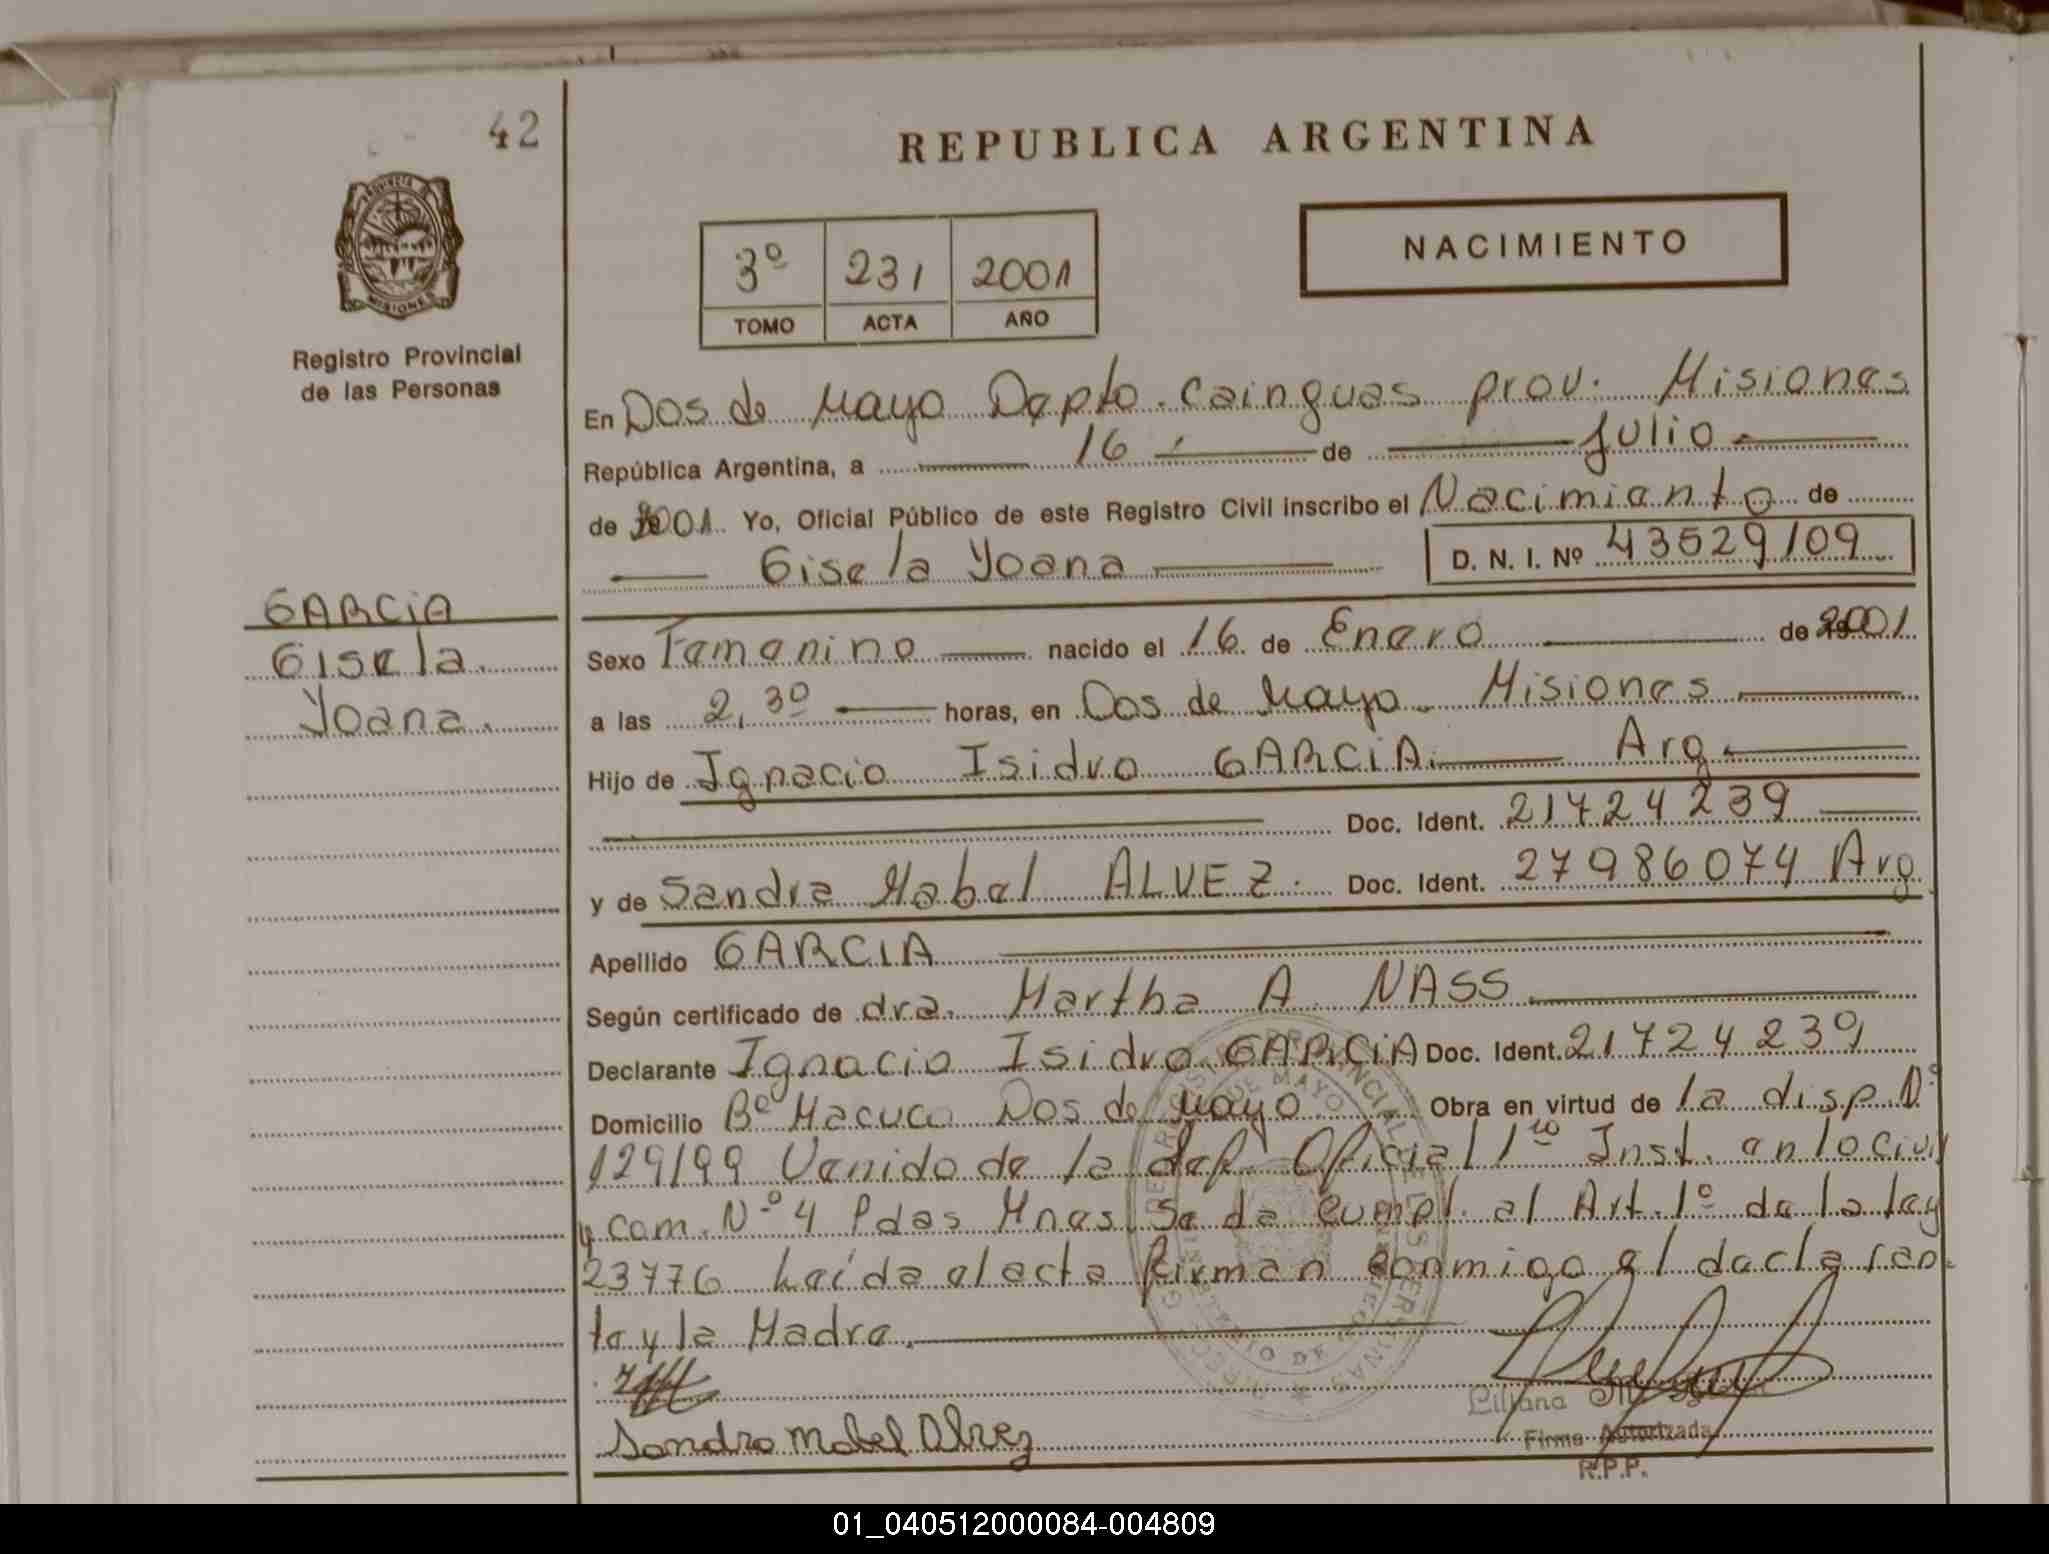 42
REPUBLICA ARGENTINA
PROVINCIA DE
MISIONES
3º 231 2001
TOMO ACTA AÑO
NACIMIENTO
Registro Provincial
de las Personas
En Dos de Mayo Depto. Cainguas prov. Misiones
República Argentina, a 16 de Julio
de 2001 Yo, Oficial Público de este Registro Civil inscribo el Nacimiento de
Gisela Yoana D. N. I. Nº 43529109
GARCIA
Gisela
Yoana.
Sexo Femenino nacido el 16 de Enero de 2001
a las 2,30 horas, en Dos de Mayo. Misiones
Hijo de Ignacio Isidro GARCIA. Arg.
Doc. Ident. 21724239
y de Sandra Mabel ALVEZ. Doc. Ident. 27986074 Arg.
Apellido GARCIA
Según certificado de dra. Martha A. NASS
Declarante Ignacio Isidro GARCIA Doc. Ident. 21724239
Domicilio Bº Macuco Dos de Mayo Obra en virtud de la disp. Nº
129/99 Venido de la def. Oficial 1ro Inst. en lo civil
y com. Nº 4 Pdas Mnes. Se da cumpl. al Art. 1º de la ley
23776 Leída el acta firman conmigo el declaran-
te y la Madre.
Sandra Mabel Alvez
Liliana
Firma Autorizada
R.P.P.
01_040512000084-004809